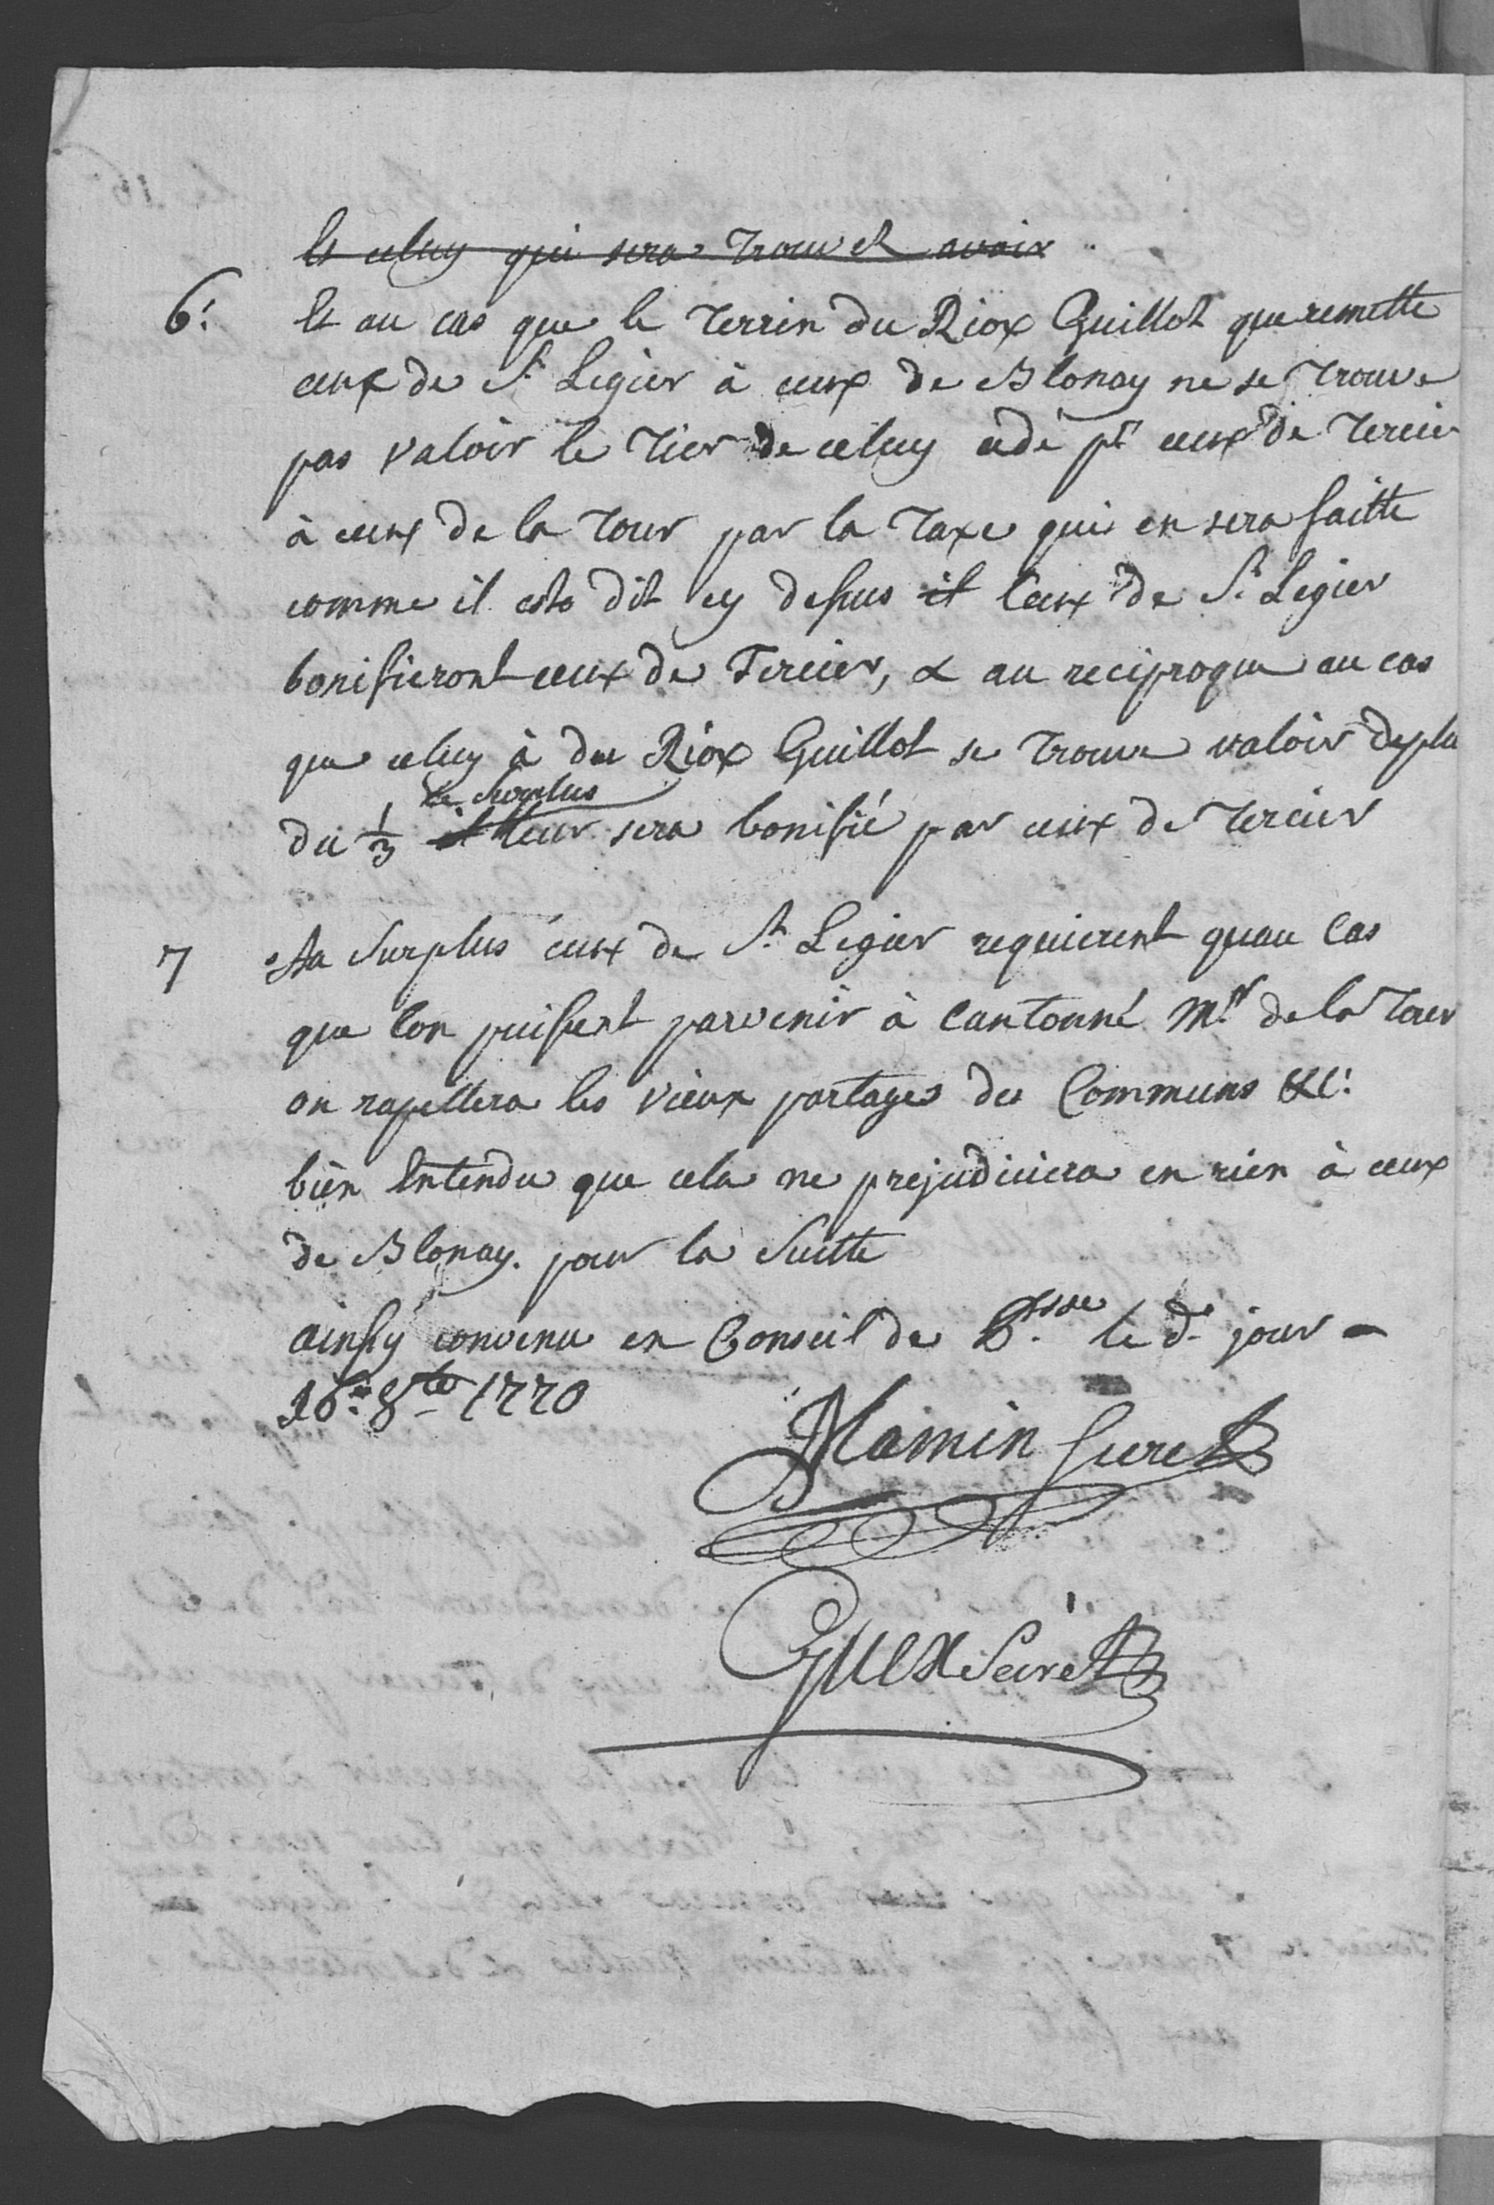 Et celuy qui sera trouvét avoir
6: Et au cas que le terrin du Riox Guillot que remette
ceux de St Legier à ceux de Blonay ne se trouve
pas valoir le tier de celuy cédé pr ceux de Tercier
à ceux de la Tour par la taxe qui en sera faitte
comme il este dit cy dessus il Ceux de St Legier
bonifieront ceux de Tercier, & au reciproque au cas
que celuy à du Riox Guillot se trouve valoir deplu
le surplus
du 1/3 il leur sera bonifié par ceux de Tercier
7 Au Surplus ceux de St Legier requierent quau Cas
que lon puissent parvenir à Cantonné Mrs de la Tour
on rapellera les vieux partages des Communs &c:
bien Entendu que cela ne prejudiciera en rien à ceux
de Blonay. pour la Suitte
ainssy convenu en Conseil de le dt jour -
16e: 8bre 1770
Mamin Secret
Guex Secret